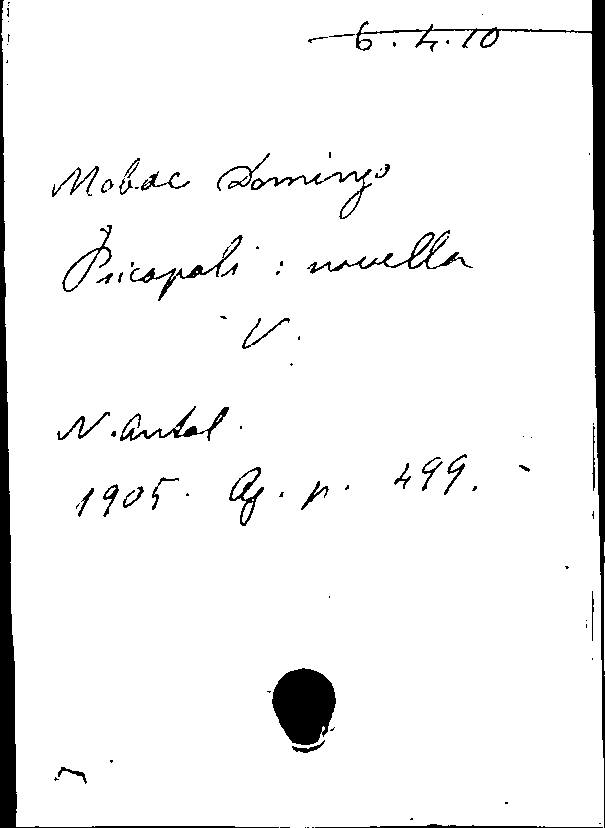 6.4.10
Mobac Domingo
Psicopoli : novella
V.
N. Antol.
1905. Ag. p. 499.